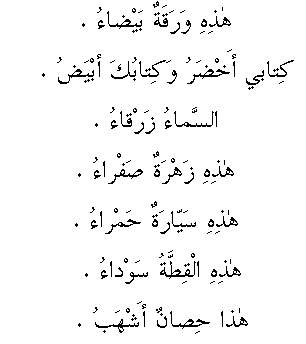 هٰذِهِ وَرَقَةٌ بَيْضاءُ .
كِتابي أَخْضَرُ وَكِتابُكَ أَبْيَضُ .
السَّماءُ زَرْقاءُ .
هٰذِهِ زَهْرَةٌ صَفْراءُ .
هٰذِهِ سَيّارَةٌ حَمْراءُ .
هٰذِهِ الْقِطَّةُ سَوْداءُ .
هٰذا حِصانٌ أَشْهَبُ .